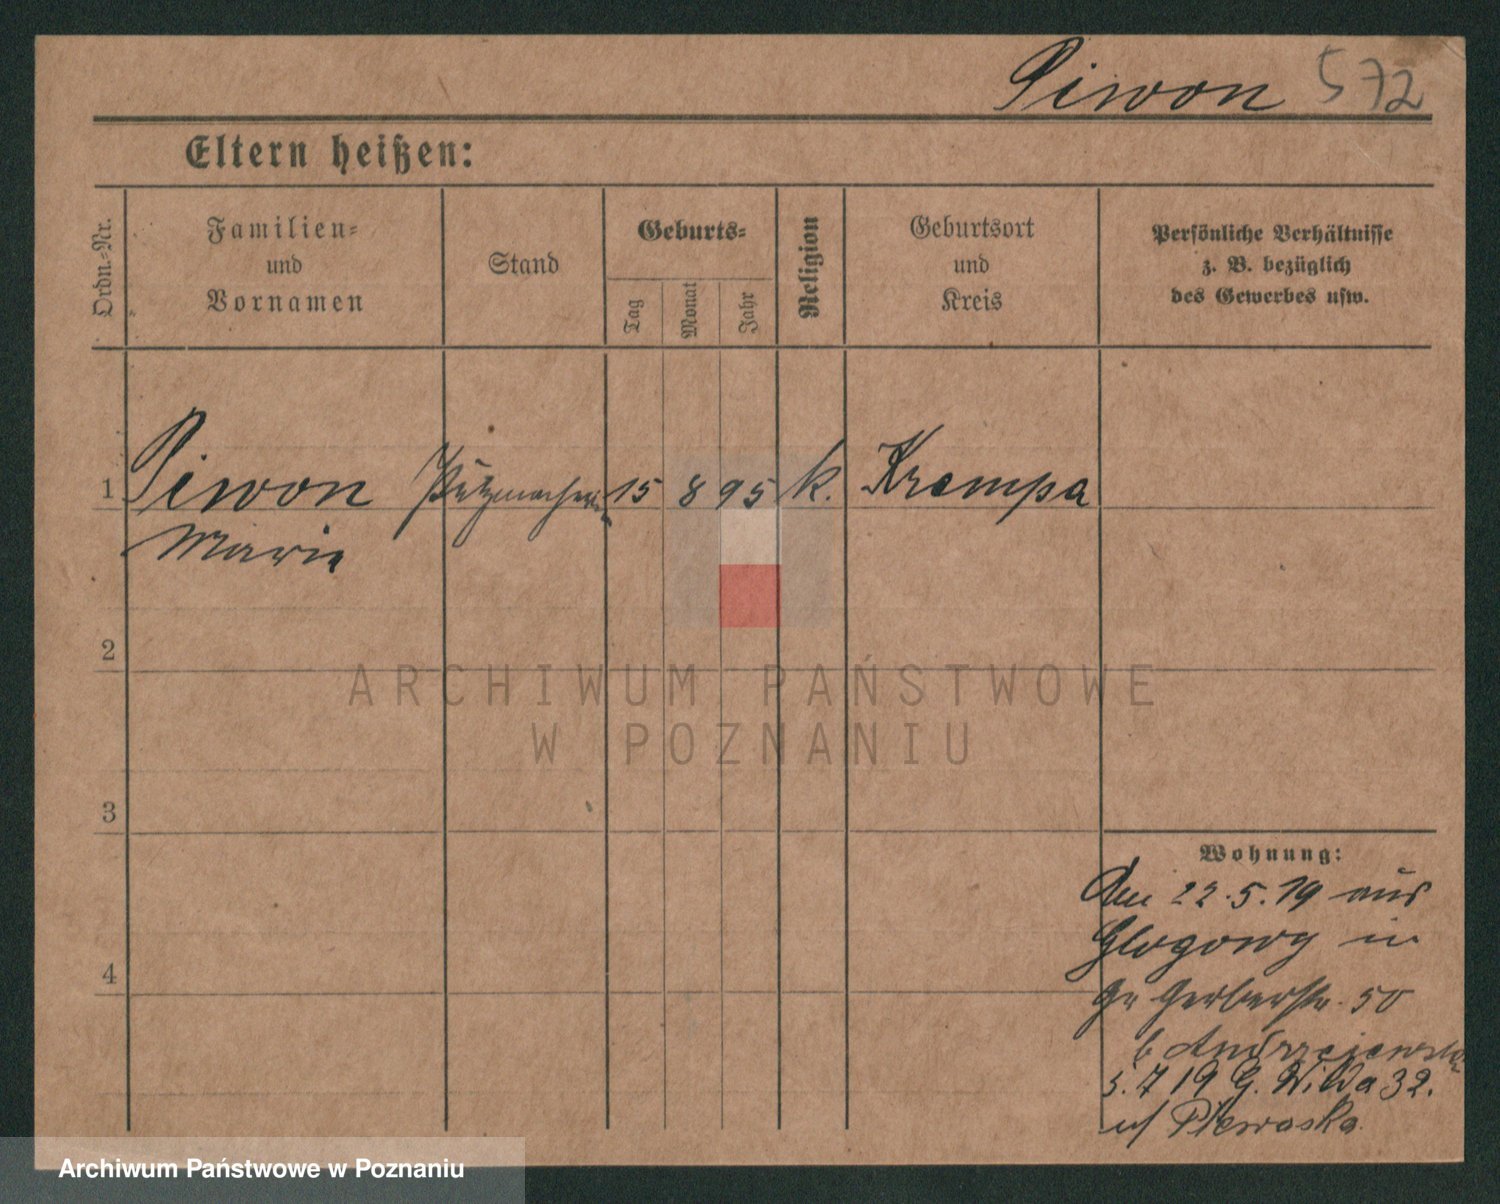 Piwon 572
Eltern heißen:
Ordn.-Nr.
Familien-
und
Vornamen
Stand
Geburts-
Tag
Monat
Jahr
Religion
Geburtsort
und
Kreis
Persönliche Verhältnisse
z. B. bezüglich
des Gewerbes usw.
1 Piwon Putzmacherin 15 8 95 k. Krempa
Marie
2
3
4
Wohnung:
Den 22.5.19 aus
Glogowy in
Gr Gerberstr. 50
b Andrzejewska
3.7 19 G. Wilda 32.
ARCHIWUM PAŃSTWOWE
W POZNANIU
Archiwum Państwowe w Poznaniu